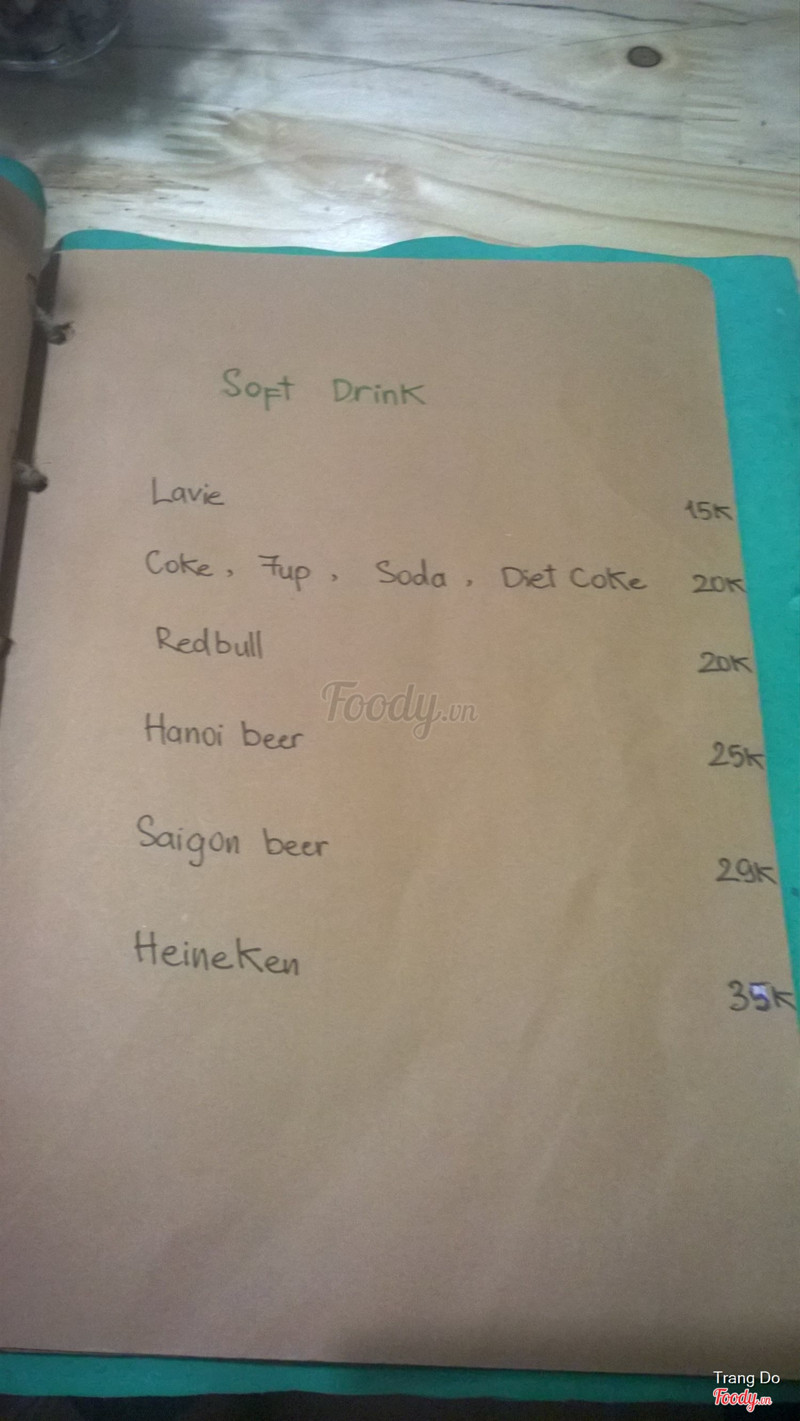 Soft Drink
Lavie 15K
Coke, 7up, Soda, Diet Coke 20K
Redbull 20K
Foody.vn
Hanoi beer 25K
Saigon beer 29K
Heineken 35K
Trang Do
Foody.vn